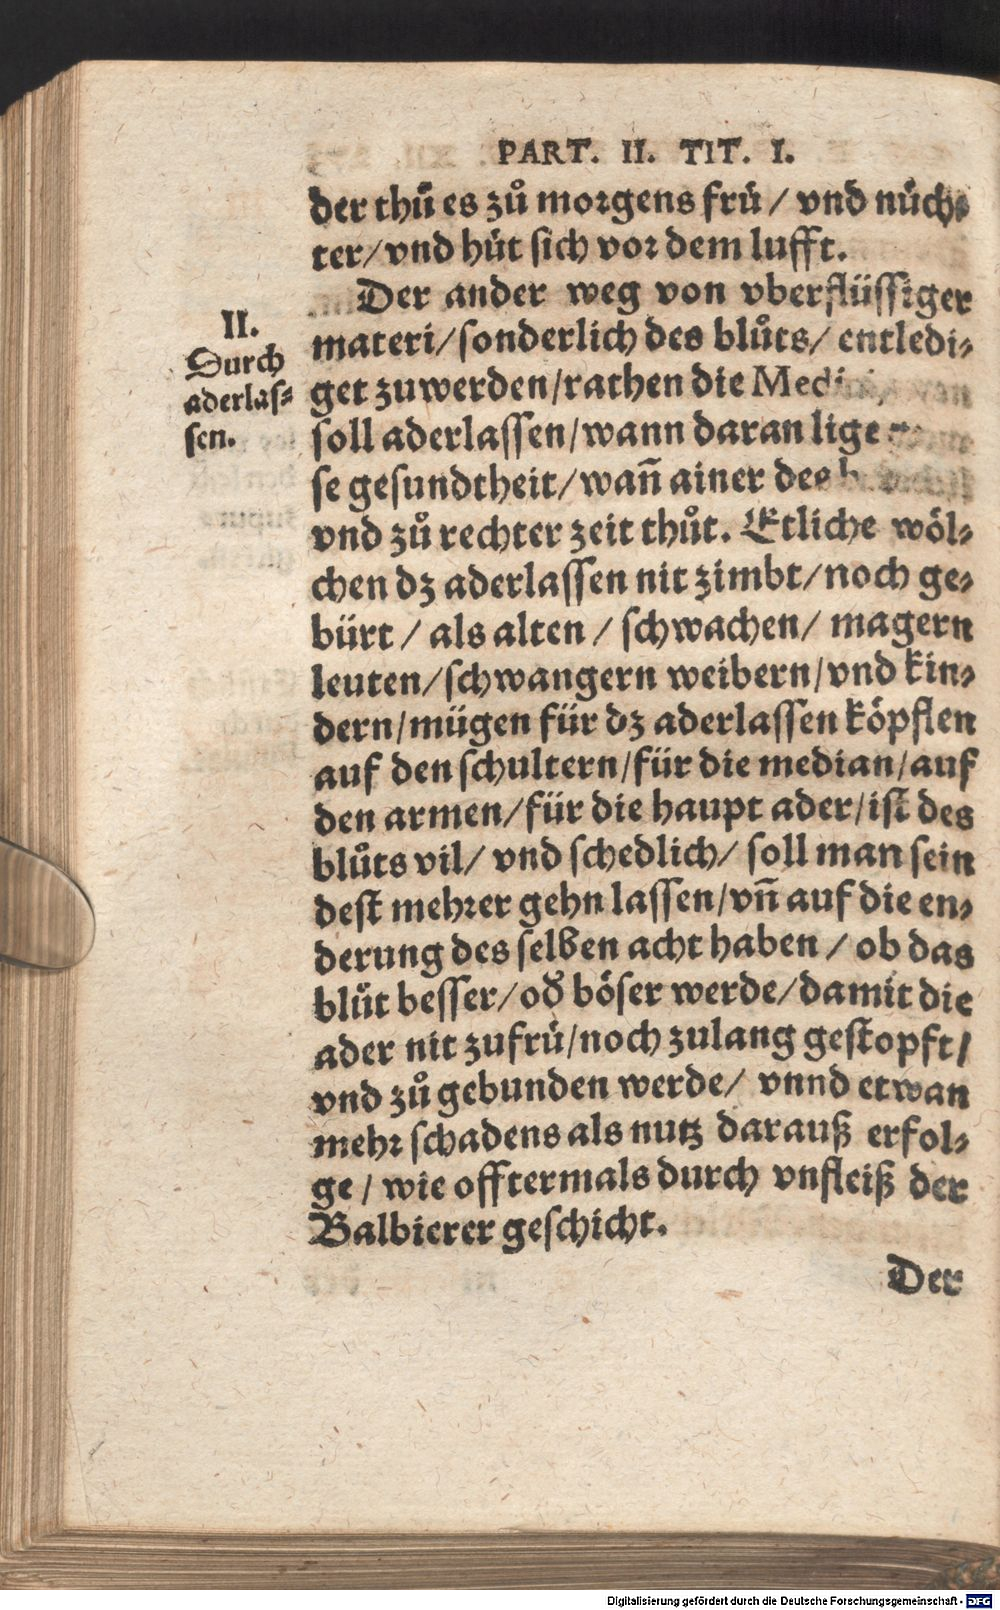 PART. II. TIT. I.
der thuͤ es zuͦ morgens fruͤ / vnd nuͤch⸗
ter / vnd huͤt sich vor dem lufft.
II.
Durch
aderlas⸗
sen.
Der ander weg von vberflüssiger
materi / sonderlich des bluͦts / entledi⸗
get zuwerden / rathen die
soll aderlassen / wann daran lige
se gesundtheit / wañ ainer des
vnd zuͦ rechter zeit thuͦt. Etliche wöl⸗
chen dz aderlassen nit zimbt / noch ge⸗
bürt / als alten / schwachen / magern
leuten / schwangern weibern / vnd kin⸗
dern / mügen für dz aderlassen köpflen
auf den schultern / für die median / auf
den armen / für die haupt ader / ist des
bluͦts vil / vnd schedlich / soll man sein
dest mehrer gehn lassen / vñ auf die en⸗
derung des selben acht haben / ob das
bluͤt besser / oď böser werde / damit die
ader nit zufruͤ / noch zulang gestopft /
vnd zuͦ gebunden werde / vnnd etwan
mehr schadens als nutz darauß erfol⸗
ge / wie offtermals durch vnfleiß der
Balbierer geschicht.
Der
Digitalisierung gefördert durch die Deutsche Forschungsgemeinschaft - DFG